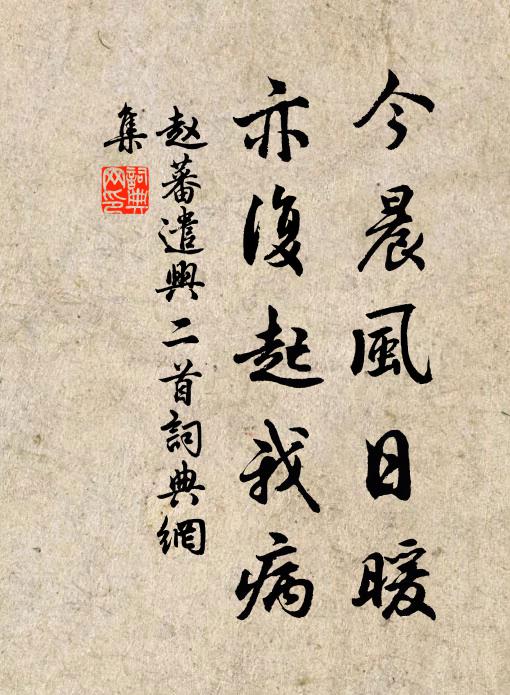 今晨風日暖
亦復起我病
赵蕃遣興二首詞典網
集
詞典
网印